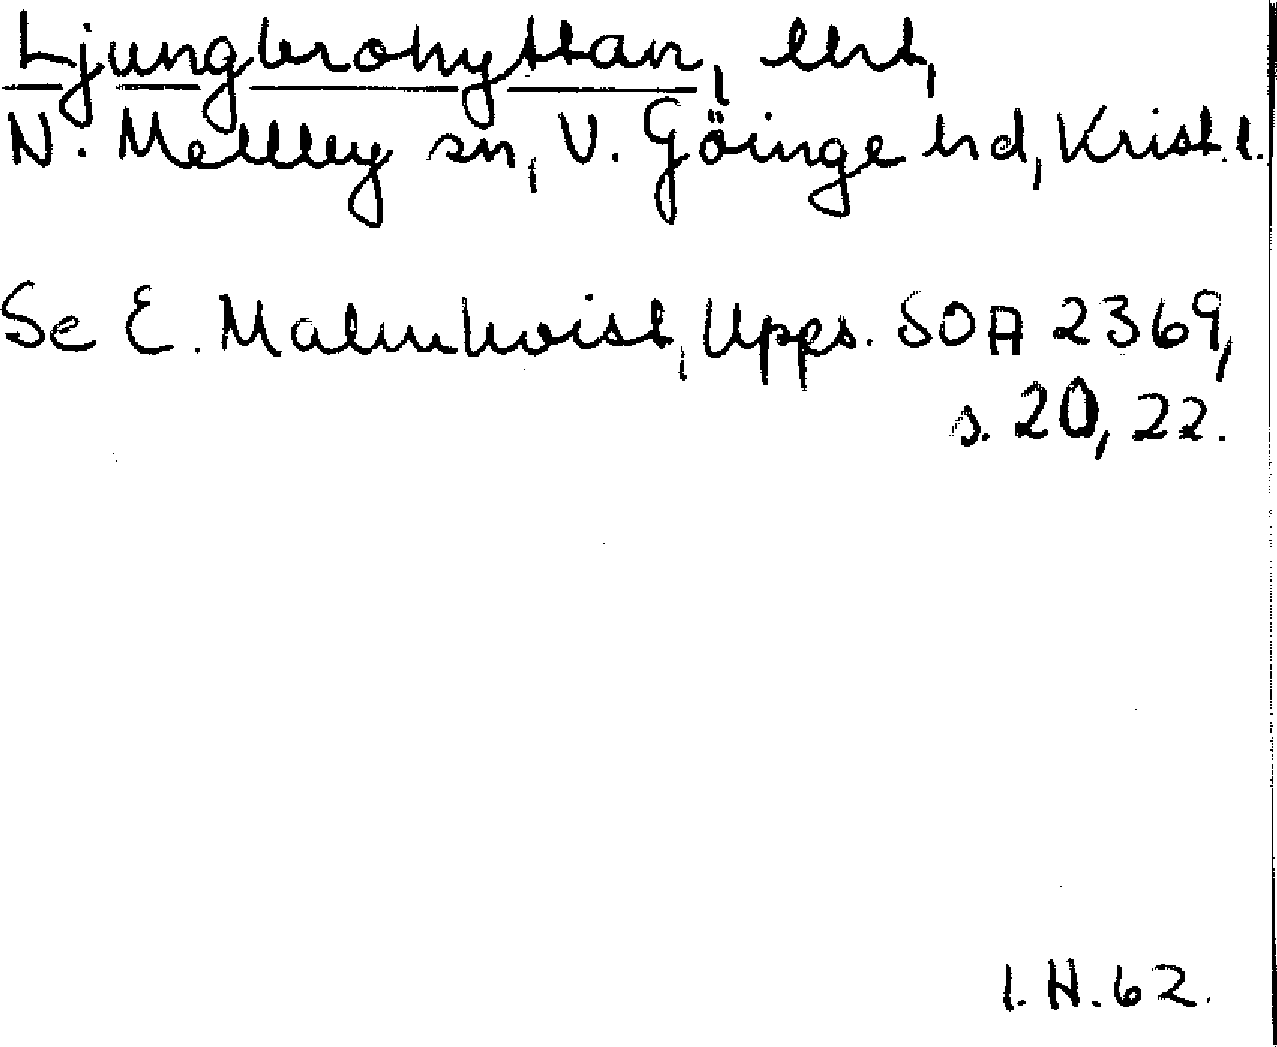 Ljungbrohyttan,
N. Mellby sn, V. Göinge hd, Krist. l.
Se E. Malmkvist, Upps. SOA 2369,
s. 20, 22.
I.H.62.